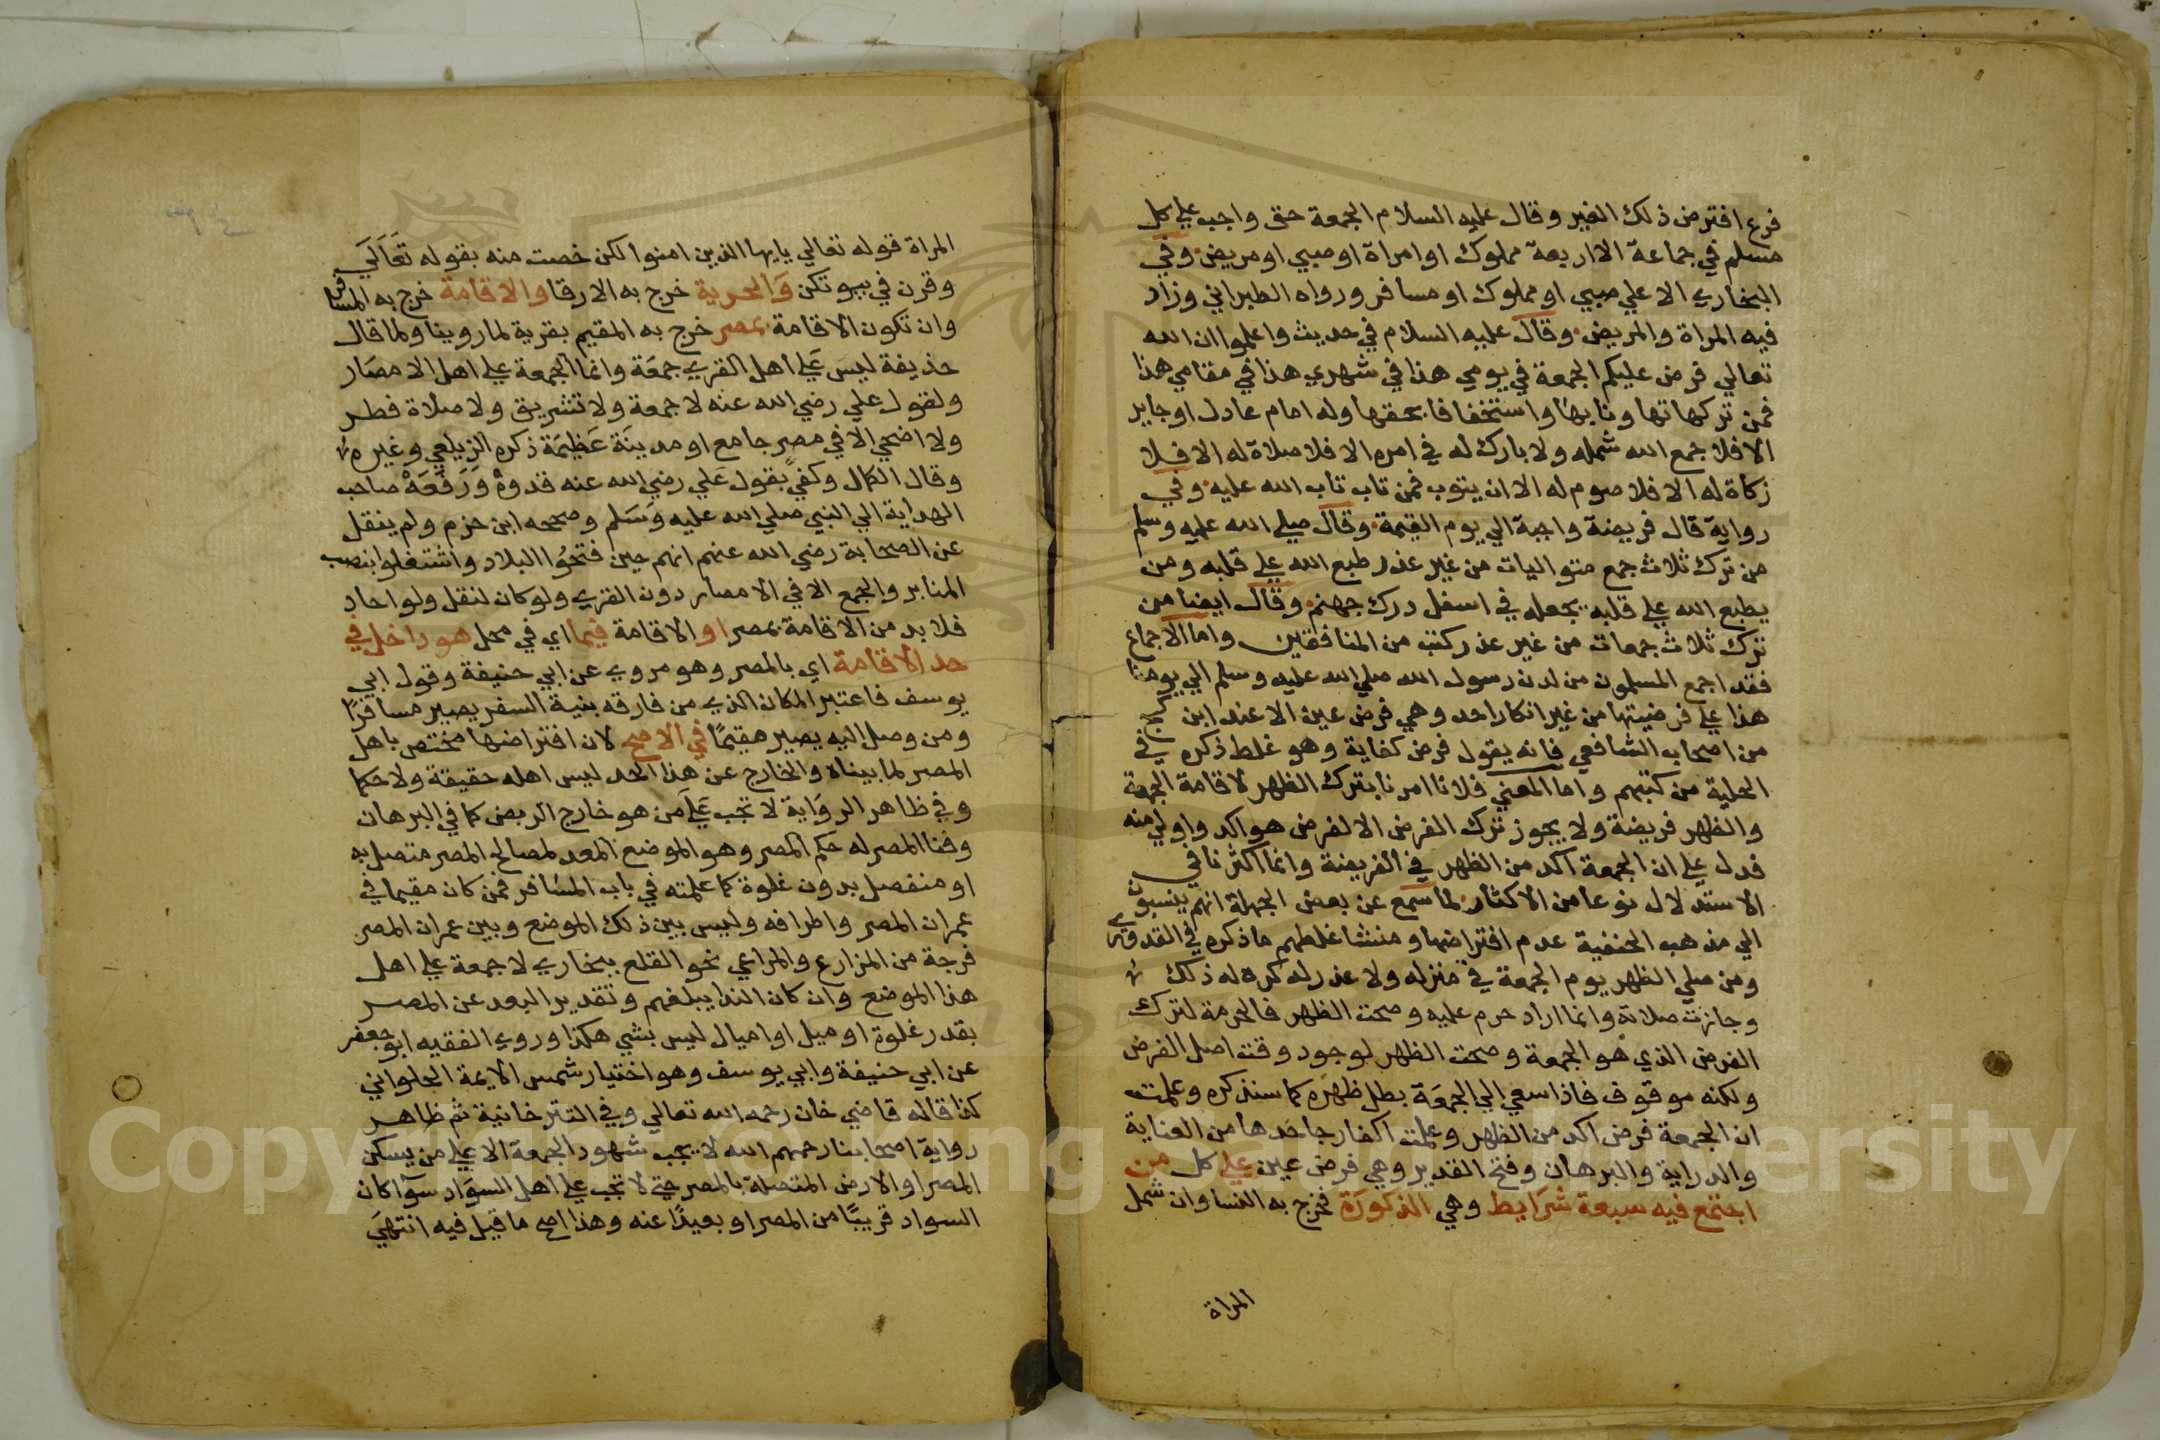 فرع افترض ذلك الغير وقال عليه السلام الجمعة حق واجب علي كل
مسلم في جماعة الا اربعة مملوك او امراة او صبي او مريض وفي
البخاري الا علي صبي او مملوك او مسافر ورواه الطبراني وزاد
فيه المراة والمريض وقال عليه السلام في حديث واعلموا ان الله
تعالي فرض عليكم الجمعة في يومي هذا في شهري هذا في مقامي هذا
فمن تركها تهاونا بها واستخفافا بحقها وله امام عادل او جاير
الا فلا جمع الله شمله ولا بارك له في امره الا فلا صلاة له الا فلا
زكاة له الا فلا صوم له الا ان يتوب فمن تاب تاب الله عليه وفي
رواية قال فريضة واجبة الي يوم القيمة وقال صلي الله عليه وسلم
من ترك ثلاث جمع متواليات من غير عذر طبع الله علي قلبه ومن
يطبع الله علي قلبه يجعله في اسفل درك جهنم وقال ايضا من
ترك ثلاث جمعات من غير عذر كتب من المنافقين واما الاجماع
فقد اجمع المسلمون من لدن رسول الله صلي الله عليه وسلم الي يومنا
هذا علي فرضيتها من غير انكار احد وهي فرض عين الا عند ابن كج
من اصحاب الشافعي فانه يقول فرض كفاية وهو غلط ذكره في
الحلية من كتبهم واما المعني فلانا امرنا بترك الظهر لاقامة الجمعة
والظهر فريضة ولا يجوز ترك الفرض الا لفرض هو اكد واولي منه
فدل علي ان الجمعة اكد من الظهر في الفريضة وانما اكثرنا في
الاستدلال نوعا من الاكثار لما سمع عن بعض الجهلة انهم ينسبون
الي مذهب الحنفية عدم افتراضها ومنشا غلطهم ما ذكره في القدوري
ومن صلي الظهر يوم الجمعة في منزله ولا عذر له كره له ذلك
وجازت صلاته وانما اراد حرم عليه وصحت الظهر فالحرمة لترك
الفرض الذي هو الجمعة وصحت الظهر لوجود وقت اصل الفرض
ولكنه موقوف فاذا سعي الي الجمعة بطل ظهره كما سنذكره وعلمت
ان الجمعة فرض اكد من الظهر وعلمت اكفار جاحدها من العناية
والدراية والبرهان وفتح القدير وهي فرض عين علي كل من
اجتمع فيه سبعة شرايط وهي الذكورة فخرج به النسا وان شمل
المراة
المراة قوله تعالي يايها الذين امنوا لكن خصت منه بقوله تعالي
وقرن في بيوتكن والحرية خرج به الارقا والاقامة خرج به المسافر
وان تكون الاقامة بمصر خرج به المقيم بقرية لما روينا ولما قال
حذيفة ليس علي اهل القري جمعة وانما الجمعة علي اهل الامصار
ولقول علي رضي الله عنه لا جمعة ولا تشريق ولا صلاة فطر
ولا اضحي الا في مصر جامع او مدينة عظيمة ذكره الزيلعي وغيره
وقال الكمال وكفي بقول علي رضي الله عنه قدوة ورفعه صاحب
الهداية الي النبي صلي الله عليه وسلم وصححه ابن حزم ولم ينقل
عن الصحابة رضي الله عنهم انهم حين فتحوا البلاد واشتغلوا بنصب
المنابر والجمع الا في الامصار دون القري ولو كان لنقل ولو احاد
فلا بد من الاقامة بمصر او الاقامة فيما اي في محل هو داخل في
حد الاقامة اي بالمصر وهو مروي عن ابي حنيفة وقول ابي
يوسف فاعتبر المكان الذي من فارقه بنية السفر يصير مسافرا
ومن وصل اليه يصير مقيما في الاصح لان افتراضها مختص باهل
المصر لما بيناه والخارج عن هذا الحد ليس اهله حقيقة ولا حكما
وفي ظاهر الرواية لا تجب علي من هو خارج الربض كما في البرهان
وفنا المصر له حكم المصر وهو الموضع المعد لمصالح المصر متصل به
او منفصل بدون غلوة كما علمته في باب المسافر فمن كان مقيما في
عمران المصر واطرافه وليس بين ذلك الموضع وبين عمران المصر
فرجة من المزارع والمراعي نحو القلع ببخاري لا جمعة علي اهل
هذا الموضع وان كان الندا يبلغهم وتقدير البعد عن المصر
بقدر غلوة او ميل او اميال ليس بشي هكذا وروي الفقيه ابو جعفر
عن ابي حنيفة وابي يوسف وهو اختيار شمس الايمة الحلواني
كذا قاله قاضي خان رحمه الله تعالي وفي التترخانية ثم ظاهر
رواية اصحابنا رحمهم الله لا يجب شهود الجمعة الا علي من يسكن
المصر او الارض المتصلة بالمصر حتي لا تجب علي اهل السواد سوآ كان
السواد قريبا من المصر او بعيدا عنه وهذا اصح ما قيل فيه انتهي
Copyright © King Saud University